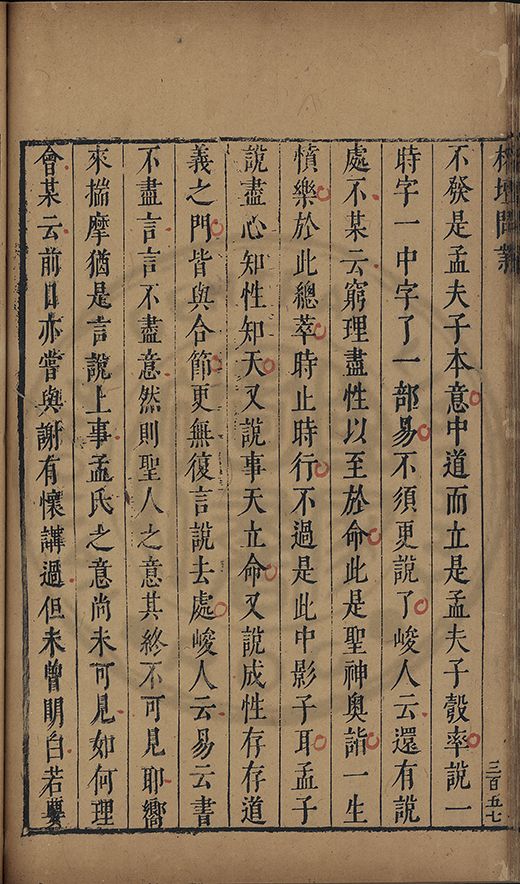 榕壇問業
三百五七
不發是孟夫子本意中道而立是孟夫子彀率說一
時字一中字了一部易不須更說了峻人云還有說
處不某云窮理盡性以至於命此是聖神奧詣一生
憤樂於此總萃時止時行不過是此中影子耳孟子
說盡心知性知天又說事天立命又說成性存存道
義之門皆與合節更無復言說去處峻人云易云書
不盡言言不盡意然則聖人之意其終不可見耶嚮
來揣摩猶是言說上事孟氏之意尚未可見如何理
會某云前日亦嘗與謝有懷講過但未曾明白若要